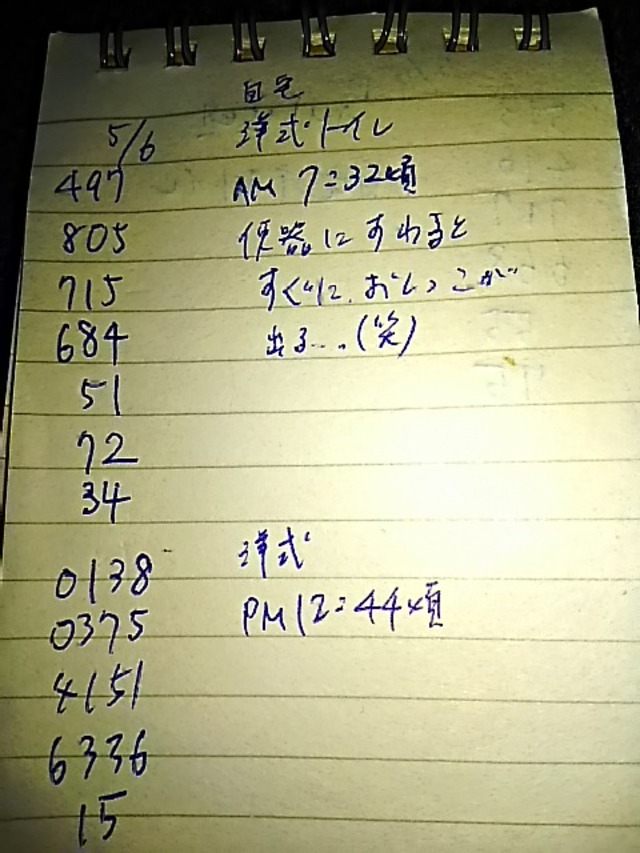 自宅
5/6 洋式トイレ
497 AM 7:32頃
805 便器にすわると
715 すぐに、おしっこが
684 出る...(笑)
51
72
34
洋式
0138
0375 PM12:44頃
4151
6336
15